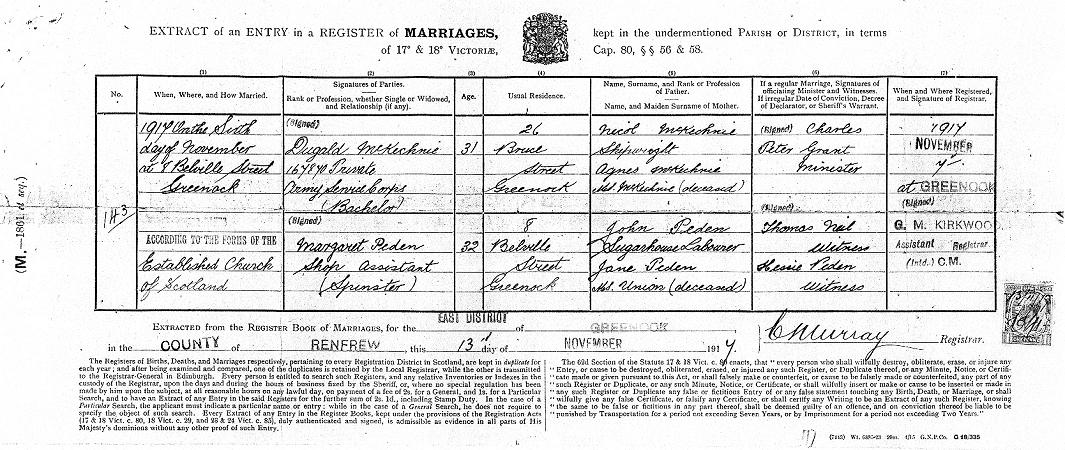 EXTRACT of an ENTRY in a REGISTER of MARRIAGES,
of 17° & 18° VICTORIÆ,
kept in the undermentioned PARISH or DISTRICT, in terms
Cap. 80, §§ 56 & 58.
(1) (2) (3) (4) (5) (6) (7)
No.
When, Where, and How Married.
Signatures of Parties.
Rank or Profession, whether Single or Widowed,
and Relationship (if any).
Age.
Usual Residence.
Name, Surname, and Rank or Profession
of Father.
Name, and Maiden Surname of Mother.
If a regular Marriage, Signatures of
officiating Minister and Witnesses.
If irregular Date of Conviction, Decree
of Declarator, or Sheriff's Warrant.
When and Where Registered,
and Signature of Registrar.
(M.—1861 et seq.)
143
1917 On the Sixth
day of November
at 8 Belville Street
Greenock
ACCORDING TO THE FORMS OF THE
Established Church
of Scotland
(Signed)
Dugald McKechnie
Private
Army Service Corps
(Bachelor)
(Signed)
Margaret Peden
Shop Assistant
(Spinster)
31
32
26
Bruce
Street
Greenock
8
Belville
Street
Greenock
Nicol McKechnie
Shipwright
Agnes McKechnie
M.S. McKechnie (deceased)
John Peden
Sugarhouse Labourer
Jane Peden
M.S. Union (deceased)
(Signed) Charles
Peter Grant
Minister
(Signed)
Thomas Neil
Witness
Hessie Peden
Witness
1917
NOVEMBER
7
at GREENOCK
(Signed)
G. M. KIRKWOOD
Assistant Registrar.
(Intd.) C.M.
EXTRACTED from the REGISTER BOOK OF MARRIAGES, for the EAST DISTRICT of GREENOCK
in the COUNTY of RENFREW, this 13 day of NOVEMBER 1917.
C Murray Registrar.
The Registers of Births, Deaths, and Marriages respectively, pertaining to every Registration District in Scotland, are kept in duplicate for
each year; and after being examined and compared, one of the duplicates is retained by the Local Registrar, while the other is transmitted
to the Registrar-General in Edinburgh. Every person is entitled to search such Registers, and any relative Inventories or Indexes in the
custody of the Registrar, upon the days and during the hours of business fixed by the Sheriff, or, where no special regulation has been
made by him upon the subject, at all reasonable hours on any lawful day, on payment of a fee of 2s. for a General, and 1s. for a Particular
Search, and to have an Extract of any Entry in the said Registers for the further sum of 2s. 1d., including Stamp Duty. In the case of a
Particular Search, the applicant must indicate a particular name or entry: while in the case of a General Search, he does not require to
specify the object of such search. Every Extract of any Entry in the Register Books, kept under the provisions of the Registration Acts
(17 & 18 Vict. c. 80, 18 Vict. c. 29, and 23 & 24 Vict. c. 85), duly authenticated and signed, is admissible as evidence in all parts of His
Majesty's dominions without any other proof of such Entry.
The 62d Section of the Statute 17 & 18 Vict. c. 80 enacts, that "every person who shall wilfully destroy, obliterate, erase, or injure any
Entry, or cause to be destroyed, obliterated, erased, or injured any such Register, or Duplicate thereof, or any Minute, Notice, or Certifi-
cate made or given pursuant to this Act, or shall falsely make or counterfeit, or cause to be falsely made or counterfeited, any part of any
such Register or Duplicate, or any such Minute, Notice, or Certificate, or shall wilfully insert or make or cause to be inserted or made in
any such Register or Duplicate any false or fictitious Entry of or any false statement touching any Birth, Death, or Marriage, or shall
wilfully give any false Certificate, or shall certify any Writing to be an Extract of any such Register, knowing
the same to be false or fictitious in any part thereof, shall be deemed guilty of an offence, and on conviction thereof be liable to be
punished by Transportation for a period not exceeding Seven Years, or by Imprisonment for a period not exceeding Two Years."
4/15 G.N.P.Co. G 18/335